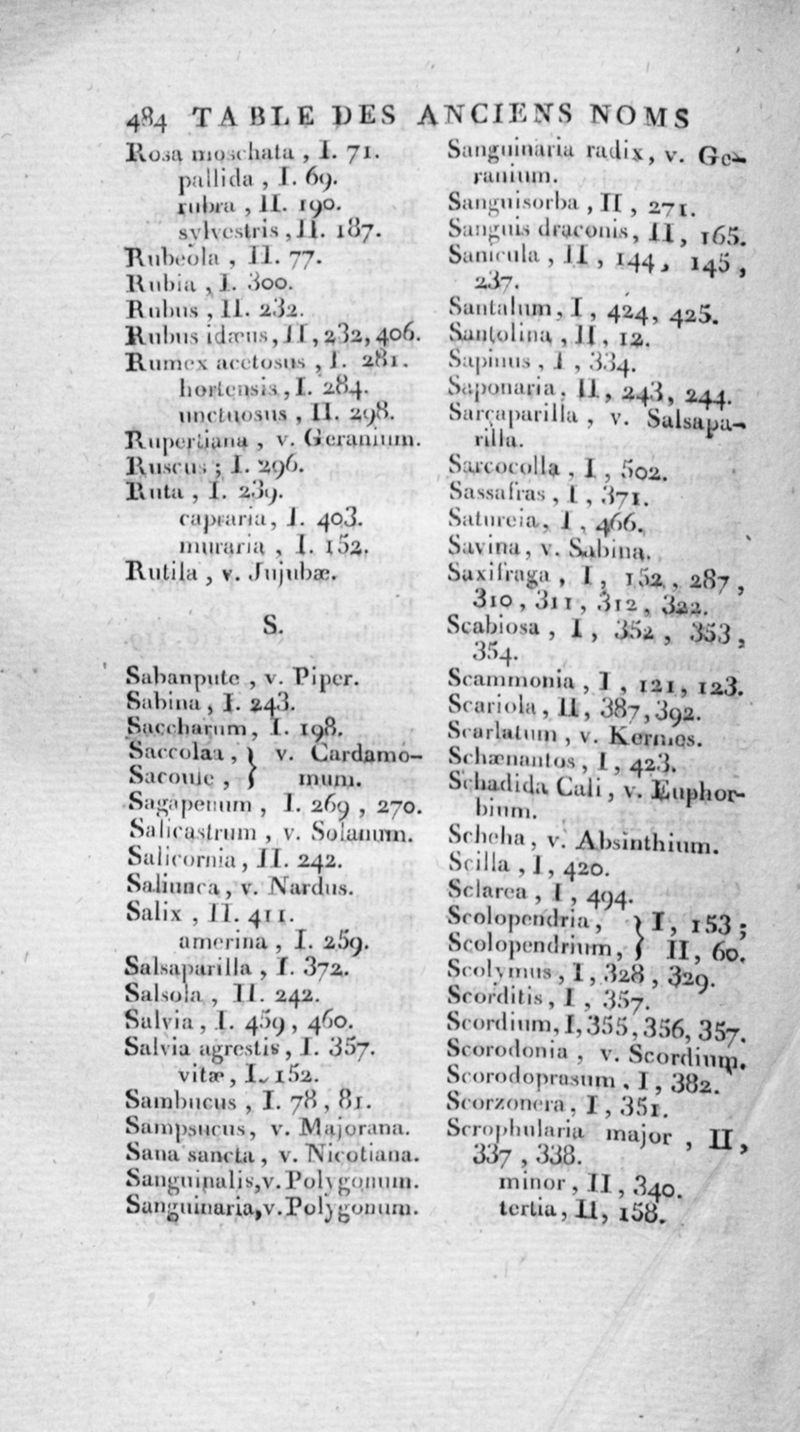 484 TABLE DES ANCIENS NOMS
Rosa moschata, I. 71.
pallida, I. 69.
rubra, II. 190.
sylvestris, II. 187.
Rubeola, II. 77.
Rubia, I. 300.
Rubus, II. 232.
Rubus idæus, II, 232, 406.
Rumex acetosus, I. 281.
hortensis, I. 284.
unctuosus, II. 298.
Rupertiana, v. Geranium.
Ruscus; I. 296.
Ruta, I. 239.
capraria, I. 403.
muraria, I. 152.
Rutila, v. Jujubæ.
S.
Sabanpute, v. Piper.
Sabina, I. 243.
Saccharum, I. 198.
Saccolaa, } v. Cardamo-
Saconie, } mum.
Sagapenum, I. 269, 270.
Salicastrum, v. Solanum.
Salicornia, II. 242.
Saliunca, v. Nardus.
Salix, II. 411.
amerina, I. 259.
Salsaparilla, I. 372.
Salsola, II. 242.
Salvia, I. 459, 460.
Salvia agrestis, I. 357.
vitæ, I. 152.
Sambucus, I. 78, 81.
Sampsucus, v. Majorana.
Sana sancta, v. Nicotiana.
Sanguinalis, v. Polygonum.
Sanguinaria, v. Polygonum.
Sanguinaria radix, v. Ge-
ranium.
Sanguisorba, II, 271.
Sanguis draconis, II, 165.
Sanicula, II, 144, 145,
237.
Santalum, I, 424, 425.
Santolina, II, 12.
Sapinus, I, 334.
Saponaria, II, 243, 244.
Sarçaparilla, v. Salsapa-
rilla.
Sarcocolla, I, 502.
Sassafras, I, 371.
Satureia, I, 466.
Savina, v. Sabina.
Saxifraga, I, 152, 287,
310, 311, 312, 322.
Scabiosa, I, 352, 353,
354.
Scammonia, I, 121, 123.
Scariola, II, 387, 392.
Scarlatum, v. Kermes.
Schænantos, I, 423.
Schadida Cali, v. Euphor-
bium.
Scheha, v. Absinthium.
Scilla, I, 420.
Sclarea, I, 494.
Scolopendria, } I, 153;
Scolopendrium, } II, 60.
Scolymus, I, 328, 329.
Scorditis, I, 357.
Scordium, I, 355, 356, 357.
Scorodonia, v. Scordium.
Scorodoprasum, I, 382.
Scorzonera, I, 351.
Scrophularia major, II,
337, 338.
minor, II, 340.
tertia, II, 158.